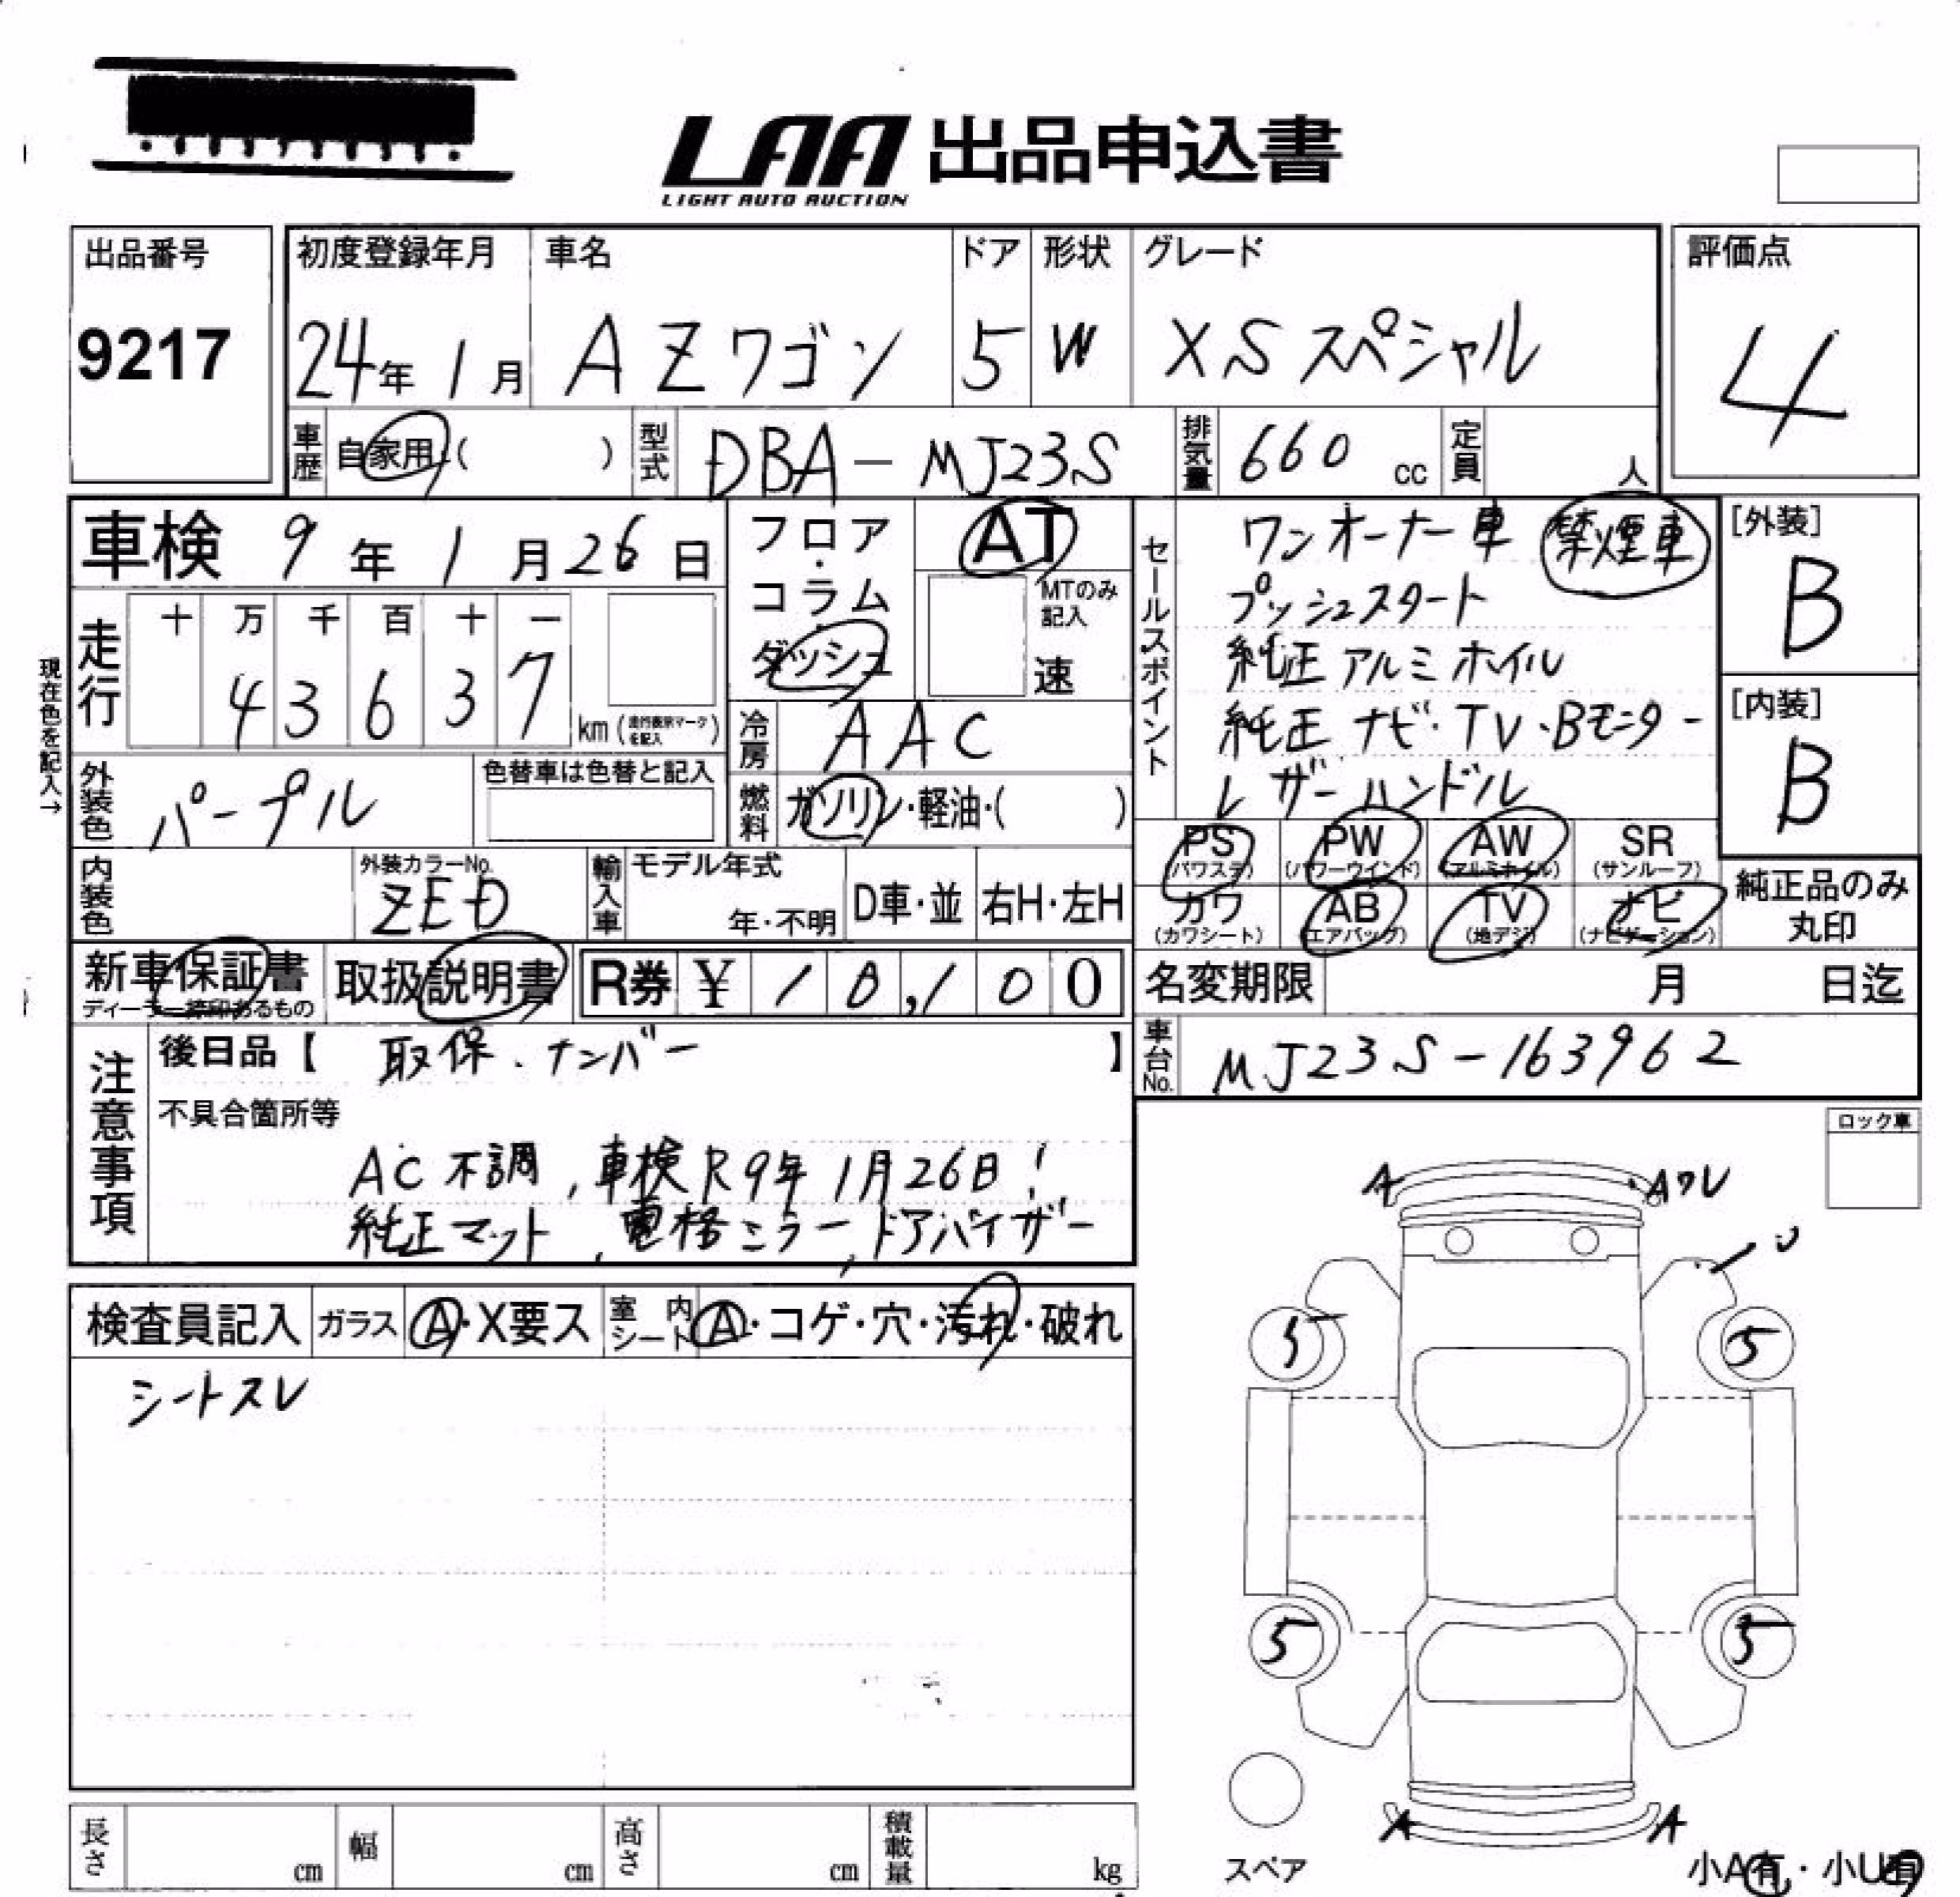 LAA 出品申込書
LIGHT AUTO AUCTION
出品番号
9217
初度登録年月
24年 1月
車名
AZワゴン
ドア
5
形状
W
グレード
XSスペシャル
評価点
4
車歴
自家用・( )
型式
DBA-MJ23S
排気量
660 cc
定員
人
車検 9年 1月 26日
フロア・コラム・ダッシュ
AT
MTのみ記入
速
走行
十 万 千 百 十 一
4 3 6 3 7
km (走行表示マークを記入)
現在色を記入→
冷房
AAC
外装色
パープル
色替車は色替と記入
燃料
ガソリン・軽油・( )
内装色
外装カラーNo.
ZED
輸入車
モデル年式
年・不明
D車・並
右H・左H
セールスポイント
ワンオーナー車 禁煙車
プッシュスタート
純正アルミホイル
純正ナビ・TV・Bモニター
レザーハンドル
[外装]
B
[内装]
B
PS (パワステ)
PW (パワーウインド)
AW (アルミホイル)
SR (サンルーフ)
カワ (カワシート)
AB (エアバッグ)
TV (地デジ)
ナビ (ナビゲーション)
純正品のみ
丸印
新車保証書
ディーラー締印あるもの
取扱説明書
R券 ¥ 10,100
名変期限 月 日迄
車台No.
MJ23S-163962
注意事項
後日品【 取保・ナンバー 】
不具合箇所等
AC不調、車検R9年1月26日!
純正マット、電格ミラー、ドアバイザー
ロック車
検査員記入
ガラス
A・X要ス
室内シート
A・コゲ・穴・汚れ・破れ
シートスレ
A
Aワレ
U
5
5
5
5
A
A
スペア
小A有・小U有
長さ cm
幅 cm
高さ cm
積載量 kg